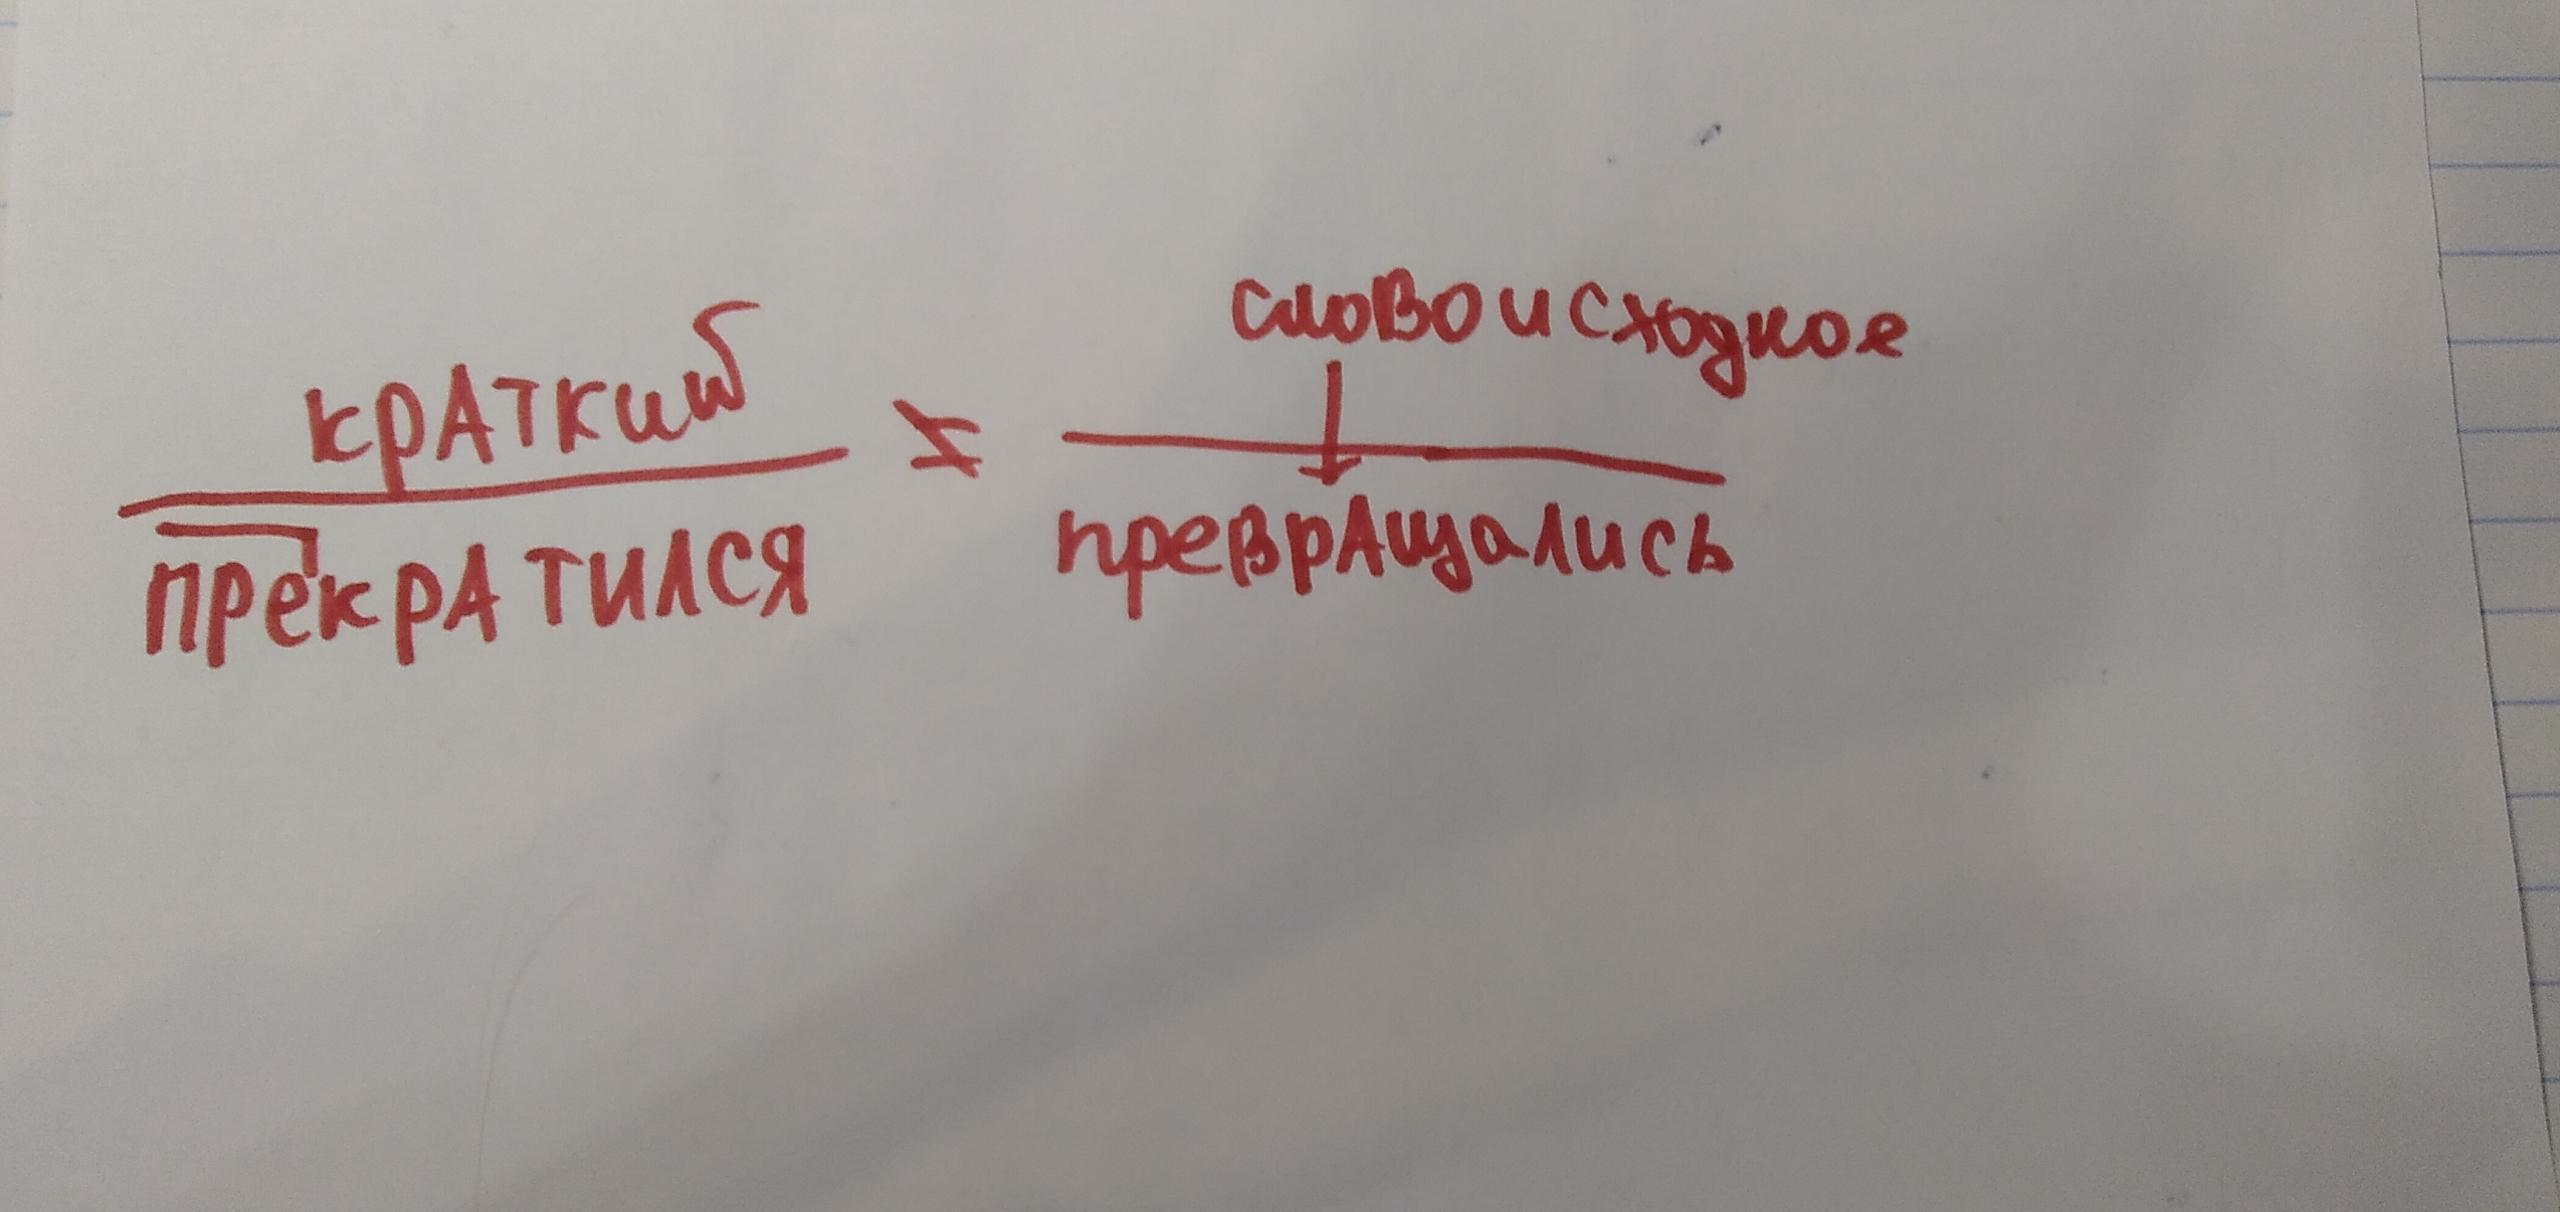 краткий
словоисходное
прекратился
превращались